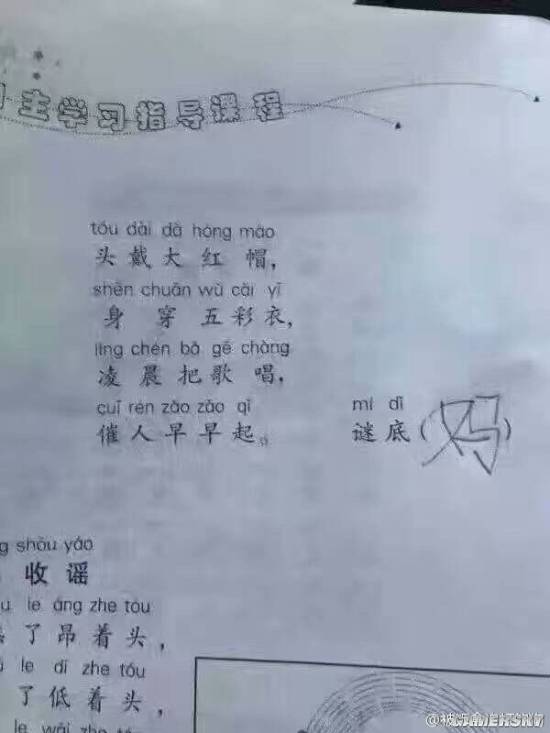 主学习指导课程
tóu dài dà hóng mào
头戴大红帽，
shēn chuān wǔ cǎi yī
身穿五彩衣，
líng chén bǎ gē chàng
凌晨把歌唱，
cuī rén zǎo zǎo qǐ
催人早早起。
mí dǐ
谜底（妈）
shōu yáo
收谣
le áng zhe tóu
了昂着头，
le dī zhe tóu
了低着头，
le wāi zhe